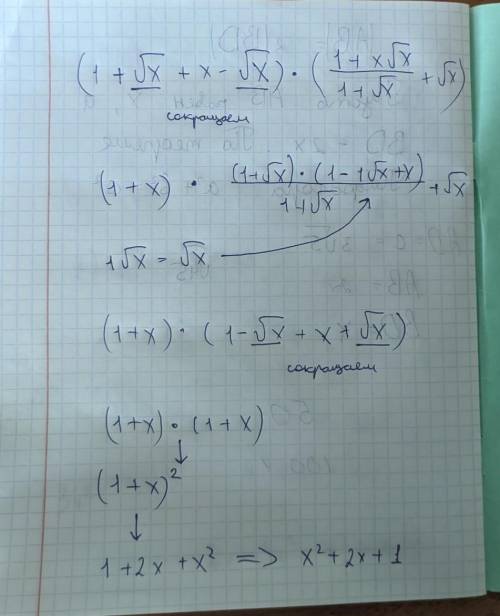 (1 + √x + x - √x) · ( (1 + x√x) / (1 + √x) + √x)
сокращаем
(1 + x) · ((1+√x) · (1 - 1√x + x)) / (1+√x) + √x
1√x = √x
(1+x) · (1 - √x + x + √x)
сокращаем
(1+x) · (1+x)
↓
(1+x)²
↓
1 + 2x + x² => x² + 2x + 1